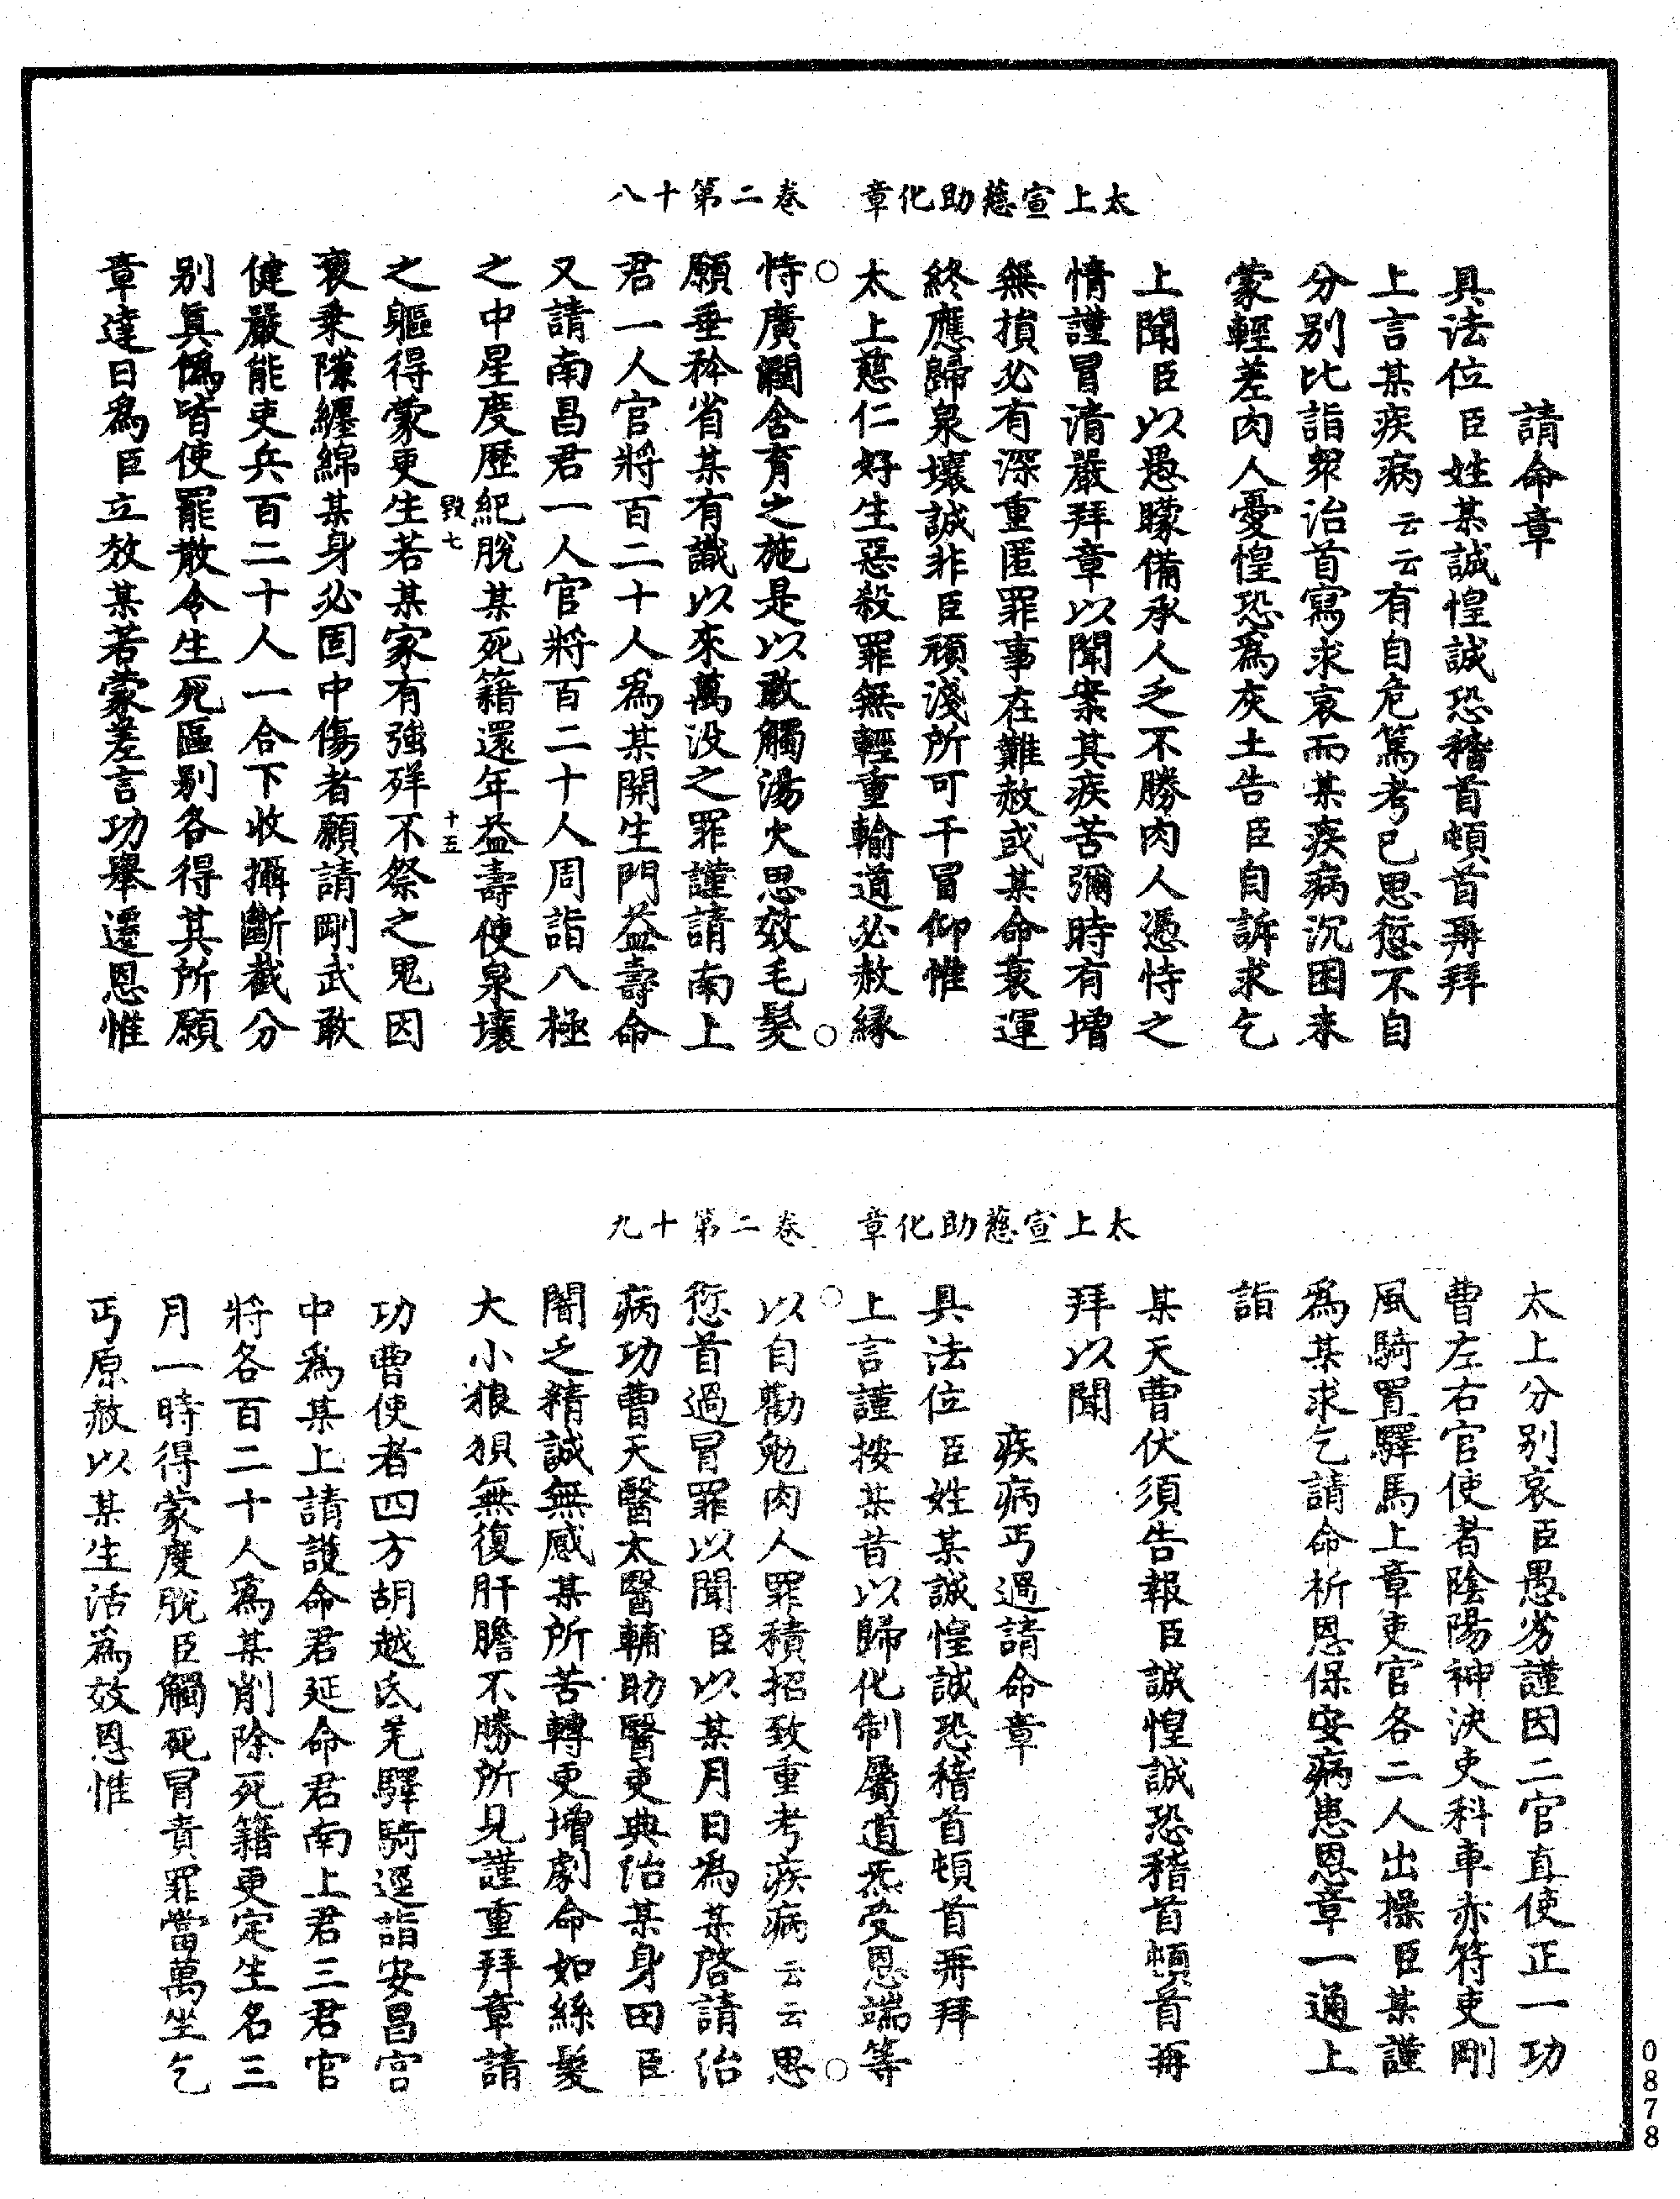 太上宣慈助化章　卷二第十八
請命章
具法位臣姓某誠惶誠恐稽首頓首再拜
上言某疾病云云有自危篤考已思愆不自
分別比詣翆治首寫求哀而某疾病沉困来
蒙輕差肉人憂惶恐爲灰土告臣自訴求乞
上聞臣以愚矇備承人乏不勝肉人憑恃之
情謹冒清嚴拜章以聞案其疾苦彌時有增
無損必有深重匿罪事在難赦或某命衰運
終應歸泉壤誠非臣頑淺所可干冒仰惟
太上慈仁好生惡殺罪無輕重輸道必赦緣
恃廣濶含育之施是以敢觸湯火思效毛髮
願垂矜省某有識以來萬没之罪謹請南上
君一人官將百二十人爲某開生門益壽命
又請南昌君一人官將百二十人周詣八極
之中星度歷紀脫某死籍還年益壽使泉壤
毀七　十五
之軀得蒙更生若某家有強殃不祭之鬼因
衰乗隙纏綿某身必固中傷者願請剛武敢
健嚴能吏兵百二十人一合下收攝斷截分
別眞僞皆使罷散令生死區别各得其所願
章達日爲臣立效某若蒙差言功舉遷恩惟
太上宣慈助化章　卷二第十九
太上分别哀臣愚劣謹因二官直使正一功
曹左右官使者陰陽神決吏科車赤符吏剛
風騎置驛馬上章吏官各二人出操臣某謹
爲某求乞請命祈恩保安病患恩章一通上
詣
某天曹伏須告報臣誠惶誠恐稽首頓首再
拜以聞
疾病丐過請命章
具法位臣姓某誠惶誠恐稽首頓首再拜
上言謹按某昔以歸化制屬道炁受恩端等
以自勸勉肉人罪積招致重考疾病云云思
愆首過冒罪以聞臣以某月日爲某啓請治
病功曹天醫太醫輔助醫吏典治某身田臣
闇乏精誠無感某所苦轉更增劇命如絲髮
大小狼狽無復肝膽不勝所見謹重拜章請
功曹使者四方胡越氐羌驛騎逕詣安昌宮
中爲某上請護命君延命君南上君三君官
將各百二十人爲某削除死籍更定生名三
月一時得蒙度脫臣觸死冒責罪當萬坐乞
丐原赦以某生活爲效恩惟
0878